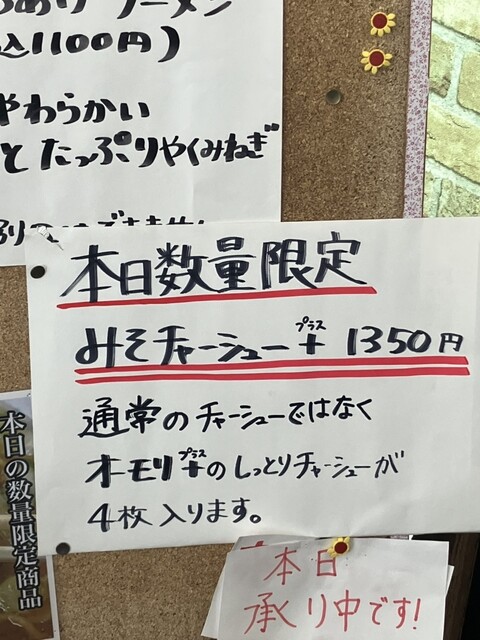 込1100円)
やわらかい
とたっぷりやくみねぎ
本日数量限定
みそチャーシュー＋ 1350円
プラス
通常のチャーシューではなく
ホモリ＋のしっとりチャーシューが
プラス
4枚入ります。
本日の数量限定商品
本日
承り中です!